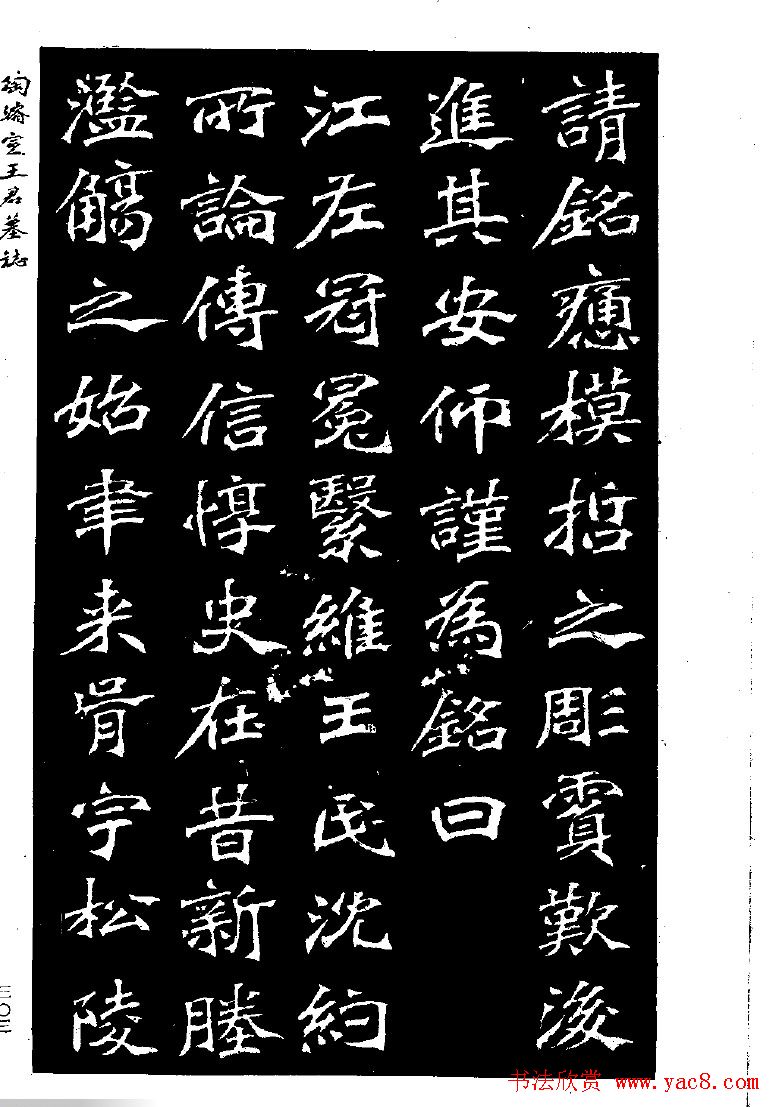 請銘模哲之彫霣歎浚
進其安仰謹為銘曰
江左冠冕繄維王氏沈約
所論傳信惇史在昔新塍
濫觴之始聿来胥宇松陵
陶濬宣王君墓誌
三〇三
书法欣赏 www.yac8.com